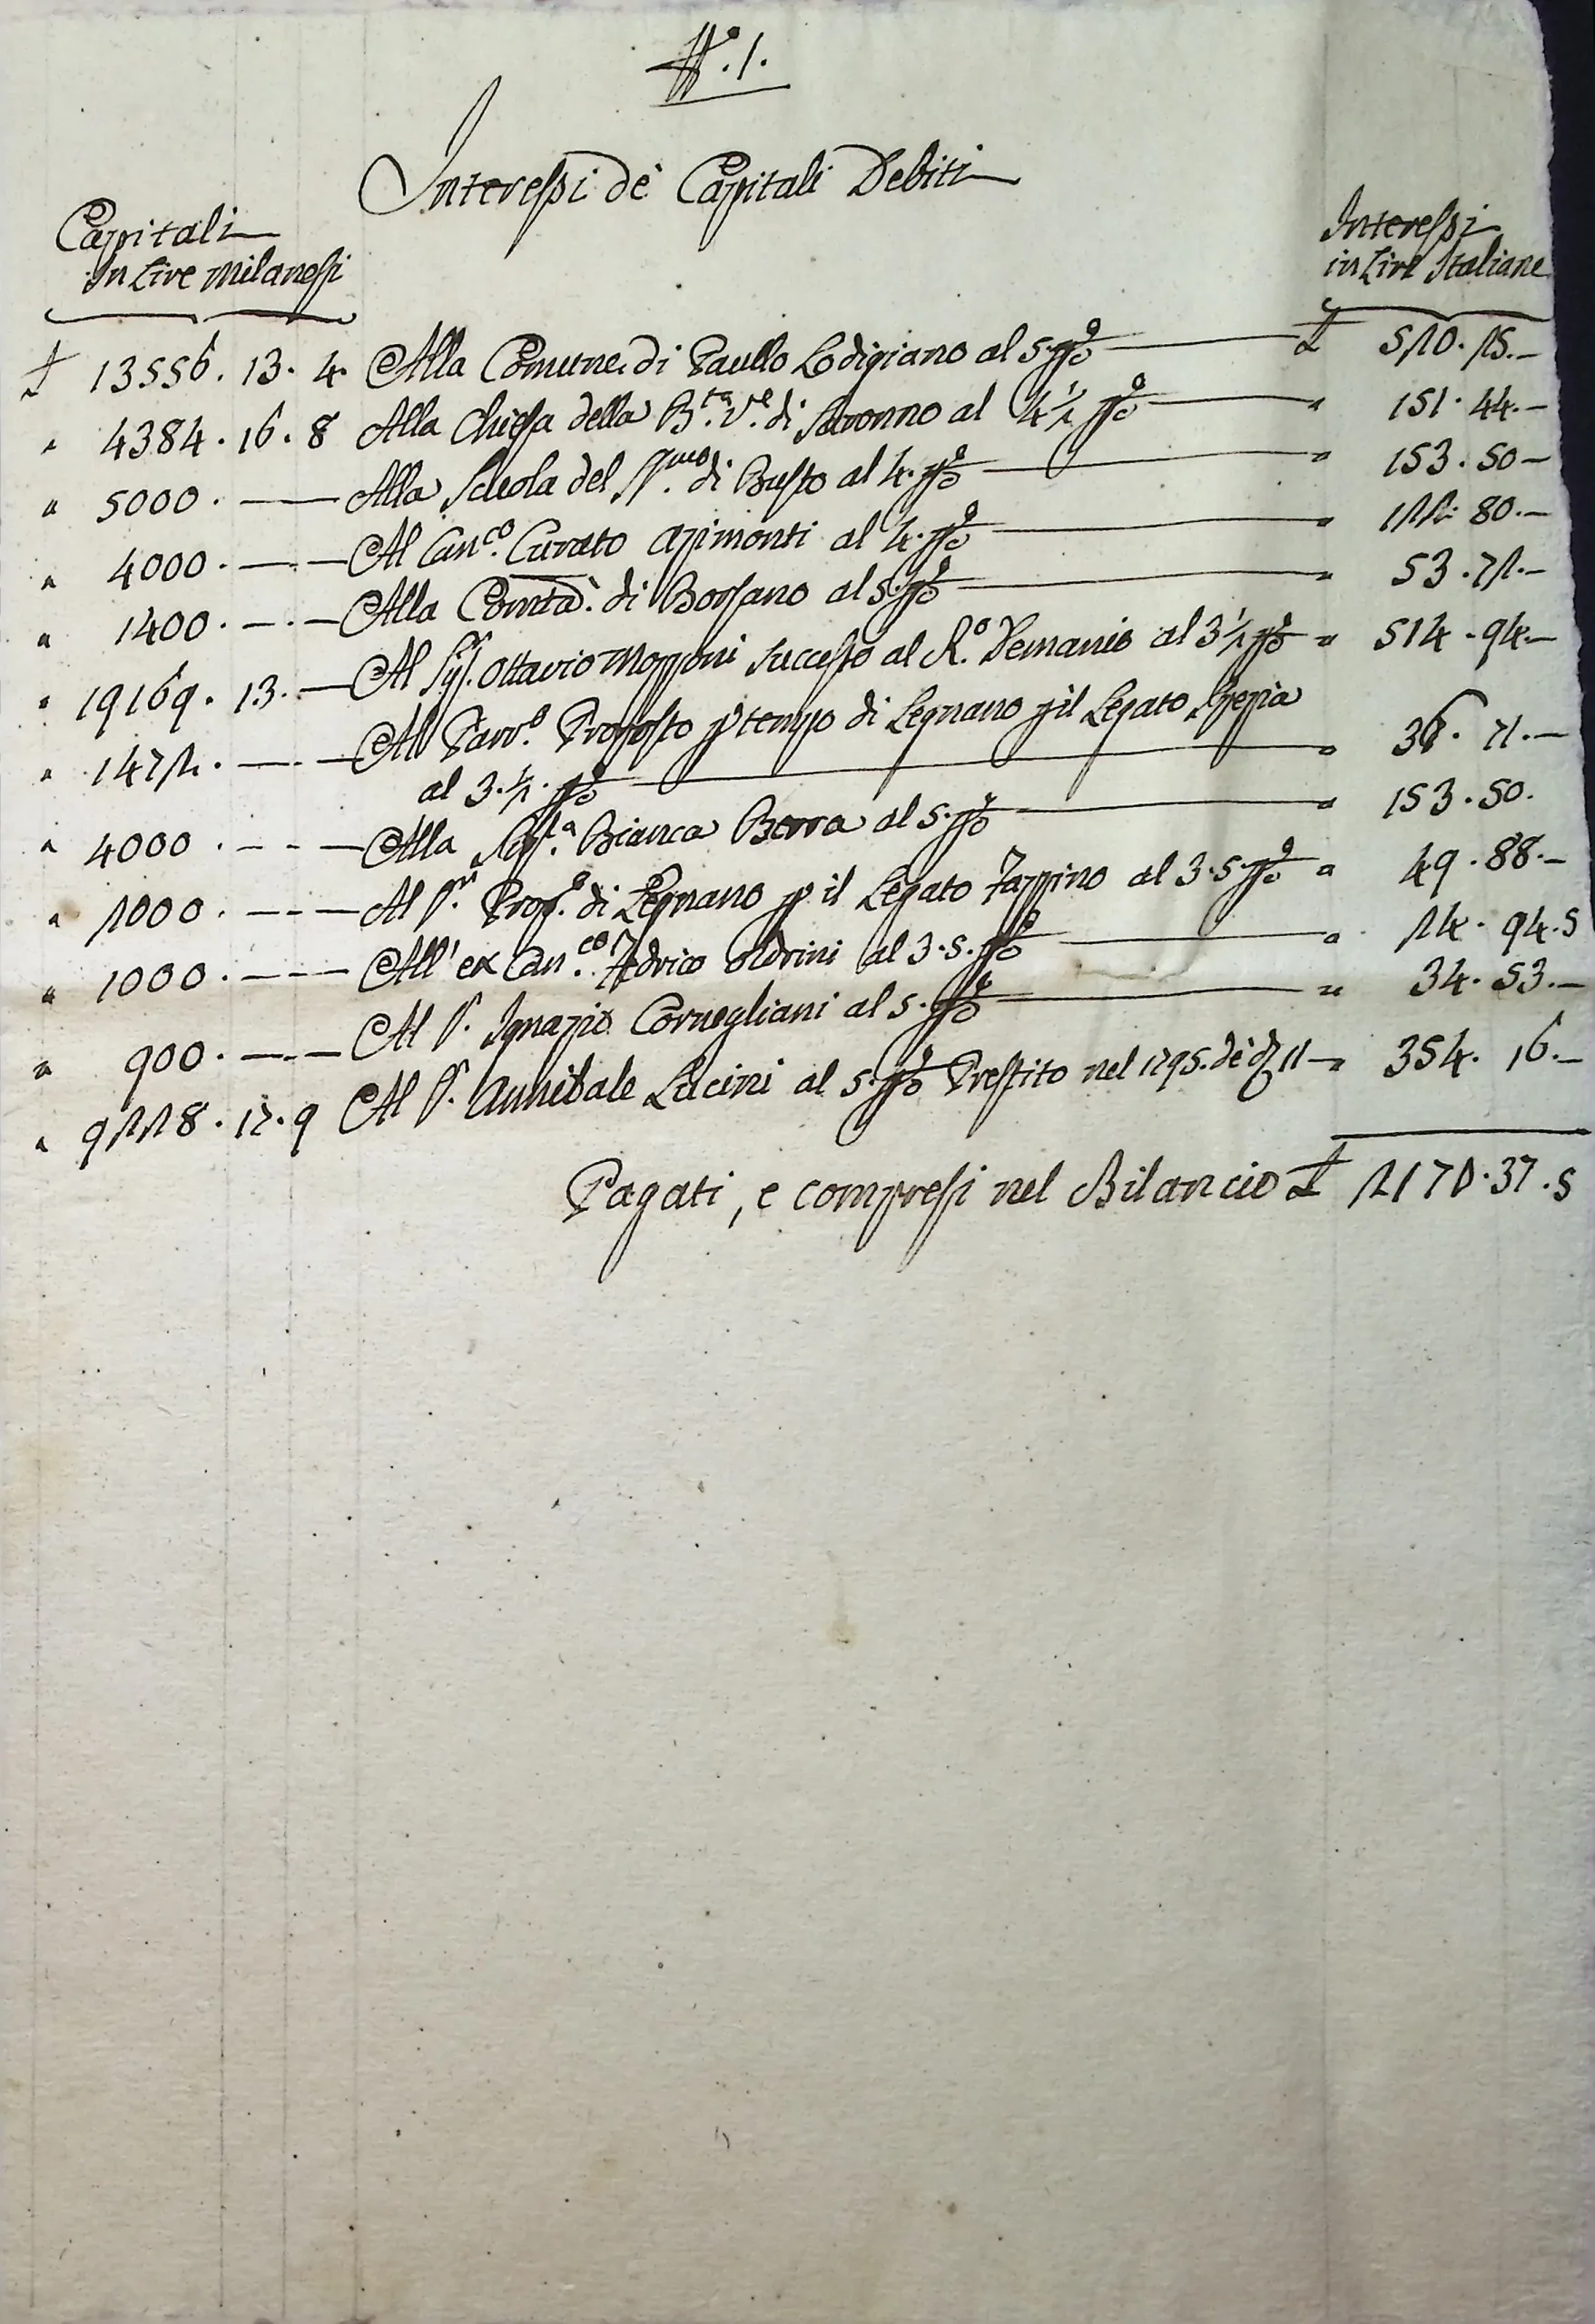 N.° 1.
Interessi de' Capitali Debiti
Capitali
in Lire Milanesi
Interessi
in Lire Italiane
£ 13556. 13. 4. Alla Comune di Paullo Lodigiano al 5. p% £ 520. 25. —
" 4384. 16. 8 Alla Chiesa della B.ta V.e di Saronno al 4 ½ p% " 151. 44. —
" 5000. — Alla Scuola del SS.mo di Busto al 4. p% " 153. 50 —
" 4000. — Al Can.co Curato Apimonti al 4. p% " 122. 80. —
" 1400. — Alla Comtà. di Borsano al 5. p% " 53. 72. —
" 19169. 13. — Al Sig.r Ottavio Mozzoni successo al R.o Demanio al 3 ½ p% " 514. 94. —
" 1472. — Al Parr.o Proposto p tempo di Legnano p il Legato Spezia
al 3. ¼. p% " 36. 71. —
" 4000. — Alla Sig.a Bianca Berra al 5. p% " 153. 50.
" 2000. — Al S.r Prop.o di Legnano p il Legato Tappino al 3. 5. p% " 49. 88. —
" 1000. — All' ex Can.co Fedrico Oldrini al 3. 5. p% " 24. 94. 5
" 900. — Al S. Ignazio Cornegliani al 5. p% " 34. 53. —
" 9228. 17. 9 Al S. Annibale Lucini al 5. p% Prestito nel 1795. de' 11 — " 354. 16. —
Pagati, e compresi nel Bilancio £ 2170. 37. 5